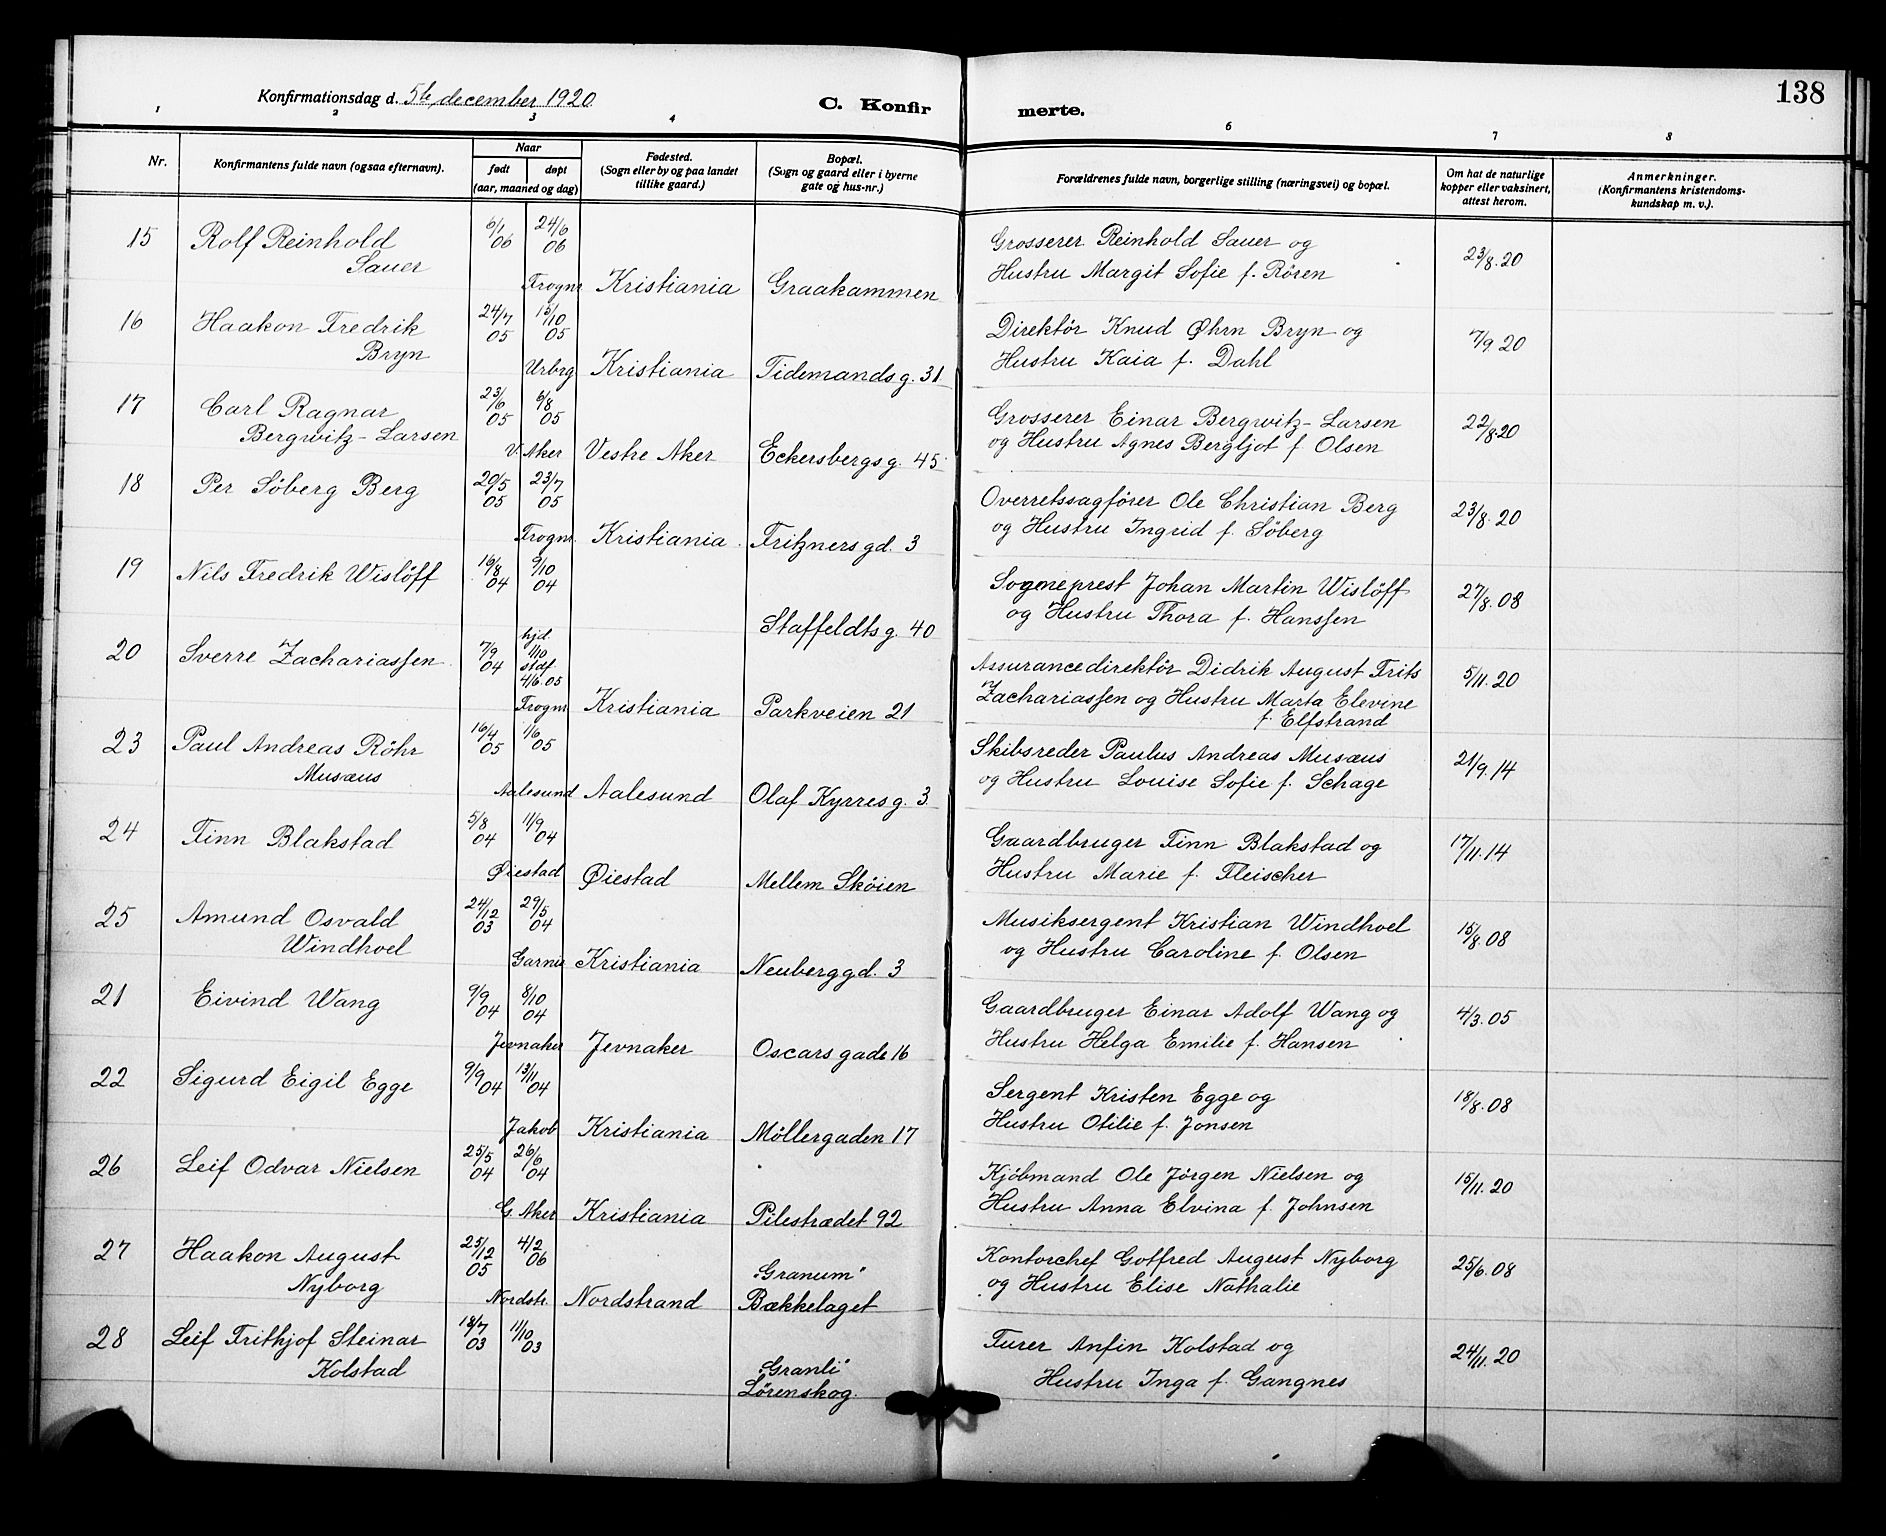 138
Konfirmationsdag d. 5te december 1920
C. Konfir merte.
1 2 3 4 6 7 8
Nr. Konfirmantens fulde navn (ogsaa efternavn). Naar født døpt (aar, maaned og dag) Fødested. (Sogn eller by og paa landet tillike gaard.) Bopæl. (Sogn og gaard eller i byerne gate og hus-nr.) Forældrenes fulde navn, borgerlige stilling (næringsvei) og bopæl. Om hat de naturlige kopper eller vaksinert, attest herom. Anmerkninger. (Konfirmantens kristendoms-kundskap m. v.).
15 Rolf Reinhold 6/1 06 24/6 06 Grosserer Reinhold Sauer og 23/8.20
Sauer Hustru Margit Sofie f. Rören
Trognr Kristiania Graakammen
16 Haakon Fredrik 24/7 05 15/10 05 Direktör Knud Øhrn Bryn og 7/9 20
Bryn Hustru Kaia f. Dahl
Urbrg Kristiania Tidemandsg. 31
17 Carl Ragnar 23/6 05 6/8 05 Grosserer Einar Bergwitz-Larsen 22/8.20
Bergwitz-Larsen og Hustru Agnes Bergljot f. Olsen
V. Aker Vestre Aker Eckersbergsg. 45
18 Per Söberg Berg 20/5 05 23/7 05 Overretssagförer Ole Christian Berg 23/8.20
og Hustru Ingrid f. Söberg
Frognr. Kristiania Fritznersgd. 3
19 Nils Fredrik Wislöff 16/8 04 9/10 04 Sogneprest Johan Martin Wislöff 27/8.08
og Hustru Thora f. Hanssen
Staffeldtsg. 40
20 Sverre Zachariassen 7/9 04 hjd. 1/10 stdf. 4/6.05 Assurancedirektör Didrik August Frits 5/11.20
Zachariassen og Hustru Marta Elevine
f. Elfstrand
Frognr Kristiania Parkveien 21
23 Paul Andreas Röhr 16/4 05 1/6 05 Skibsreder Paulus Andreas Musæus 21/9.14
Musæus og Hustru Louise Sofie f. Schage
Aalesund Aalesund Olaf Kyrresg. 3
24 Finn Blakstad 5/8 04 11/9 04 Gaardbruger Finn Blakstad og 17/11.14
Hustru Marie f. Fleischer
Øiestad Øiestad Mellem Sköien
25 Amund Osvald 24/12 03 29/5 04 Musiksergent Kristian Windhoel 15/8.08
Windhoel og Hustru Caroline f. Olsen
Garnis Kristiania Neuberggd. 3
21 Eivind Wang 9/9 04 8/10 04 Gaardbruger Einar Adolf Wang og 4/3.05
Hustru Helga Emilie f. Hansen
Jevnaker Jevnaker Oscars gade 16
22 Sigurd Eigil Egge 9/9 04 13/11 04 Sergent Kristen Egge og 18/8.08
Hustru Otilie f. Jonsen
Jakob Kristiania Möllergaden 17
26 Leif Odvar Nielsen 25/5 04 26/6 04 Kjöbmand Ole Jörgen Nielsen og 15/11.20
Hustru Anna Elvina f. Johnsen
G. Aker Kristiania Pilestrædet 92
27 Haakon August 25/12 05 4/2 06 Kontorchef Gotfred August Nyborg 25/6.08
Nyborg "Granum" og Hustru Elise Nathalie
Nordstr. Nordstrand Bækkelaget
28 Leif Frithjof Steinar 18/7 03 1/10 03 Furer Anfin Kolstad og 24/11.20
Kolstad "Granli" Hustru Inga f. Gangnes
Lørenskog.